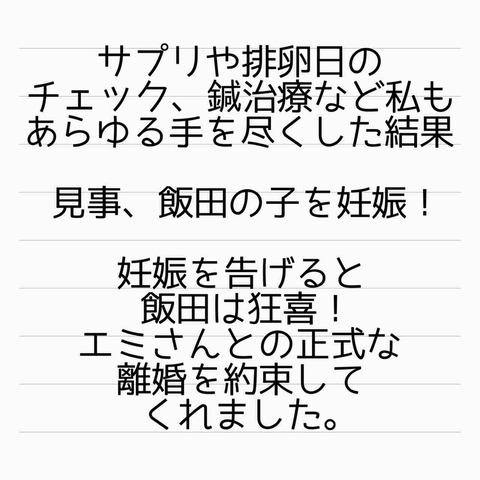 サプリや排卵日の
チェック、鍼治療など私も
あらゆる手を尽くした結果
見事、飯田の子を妊娠！
妊娠を告げると
飯田は狂喜！
エミさんとの正式な
離婚を約束して
くれました。